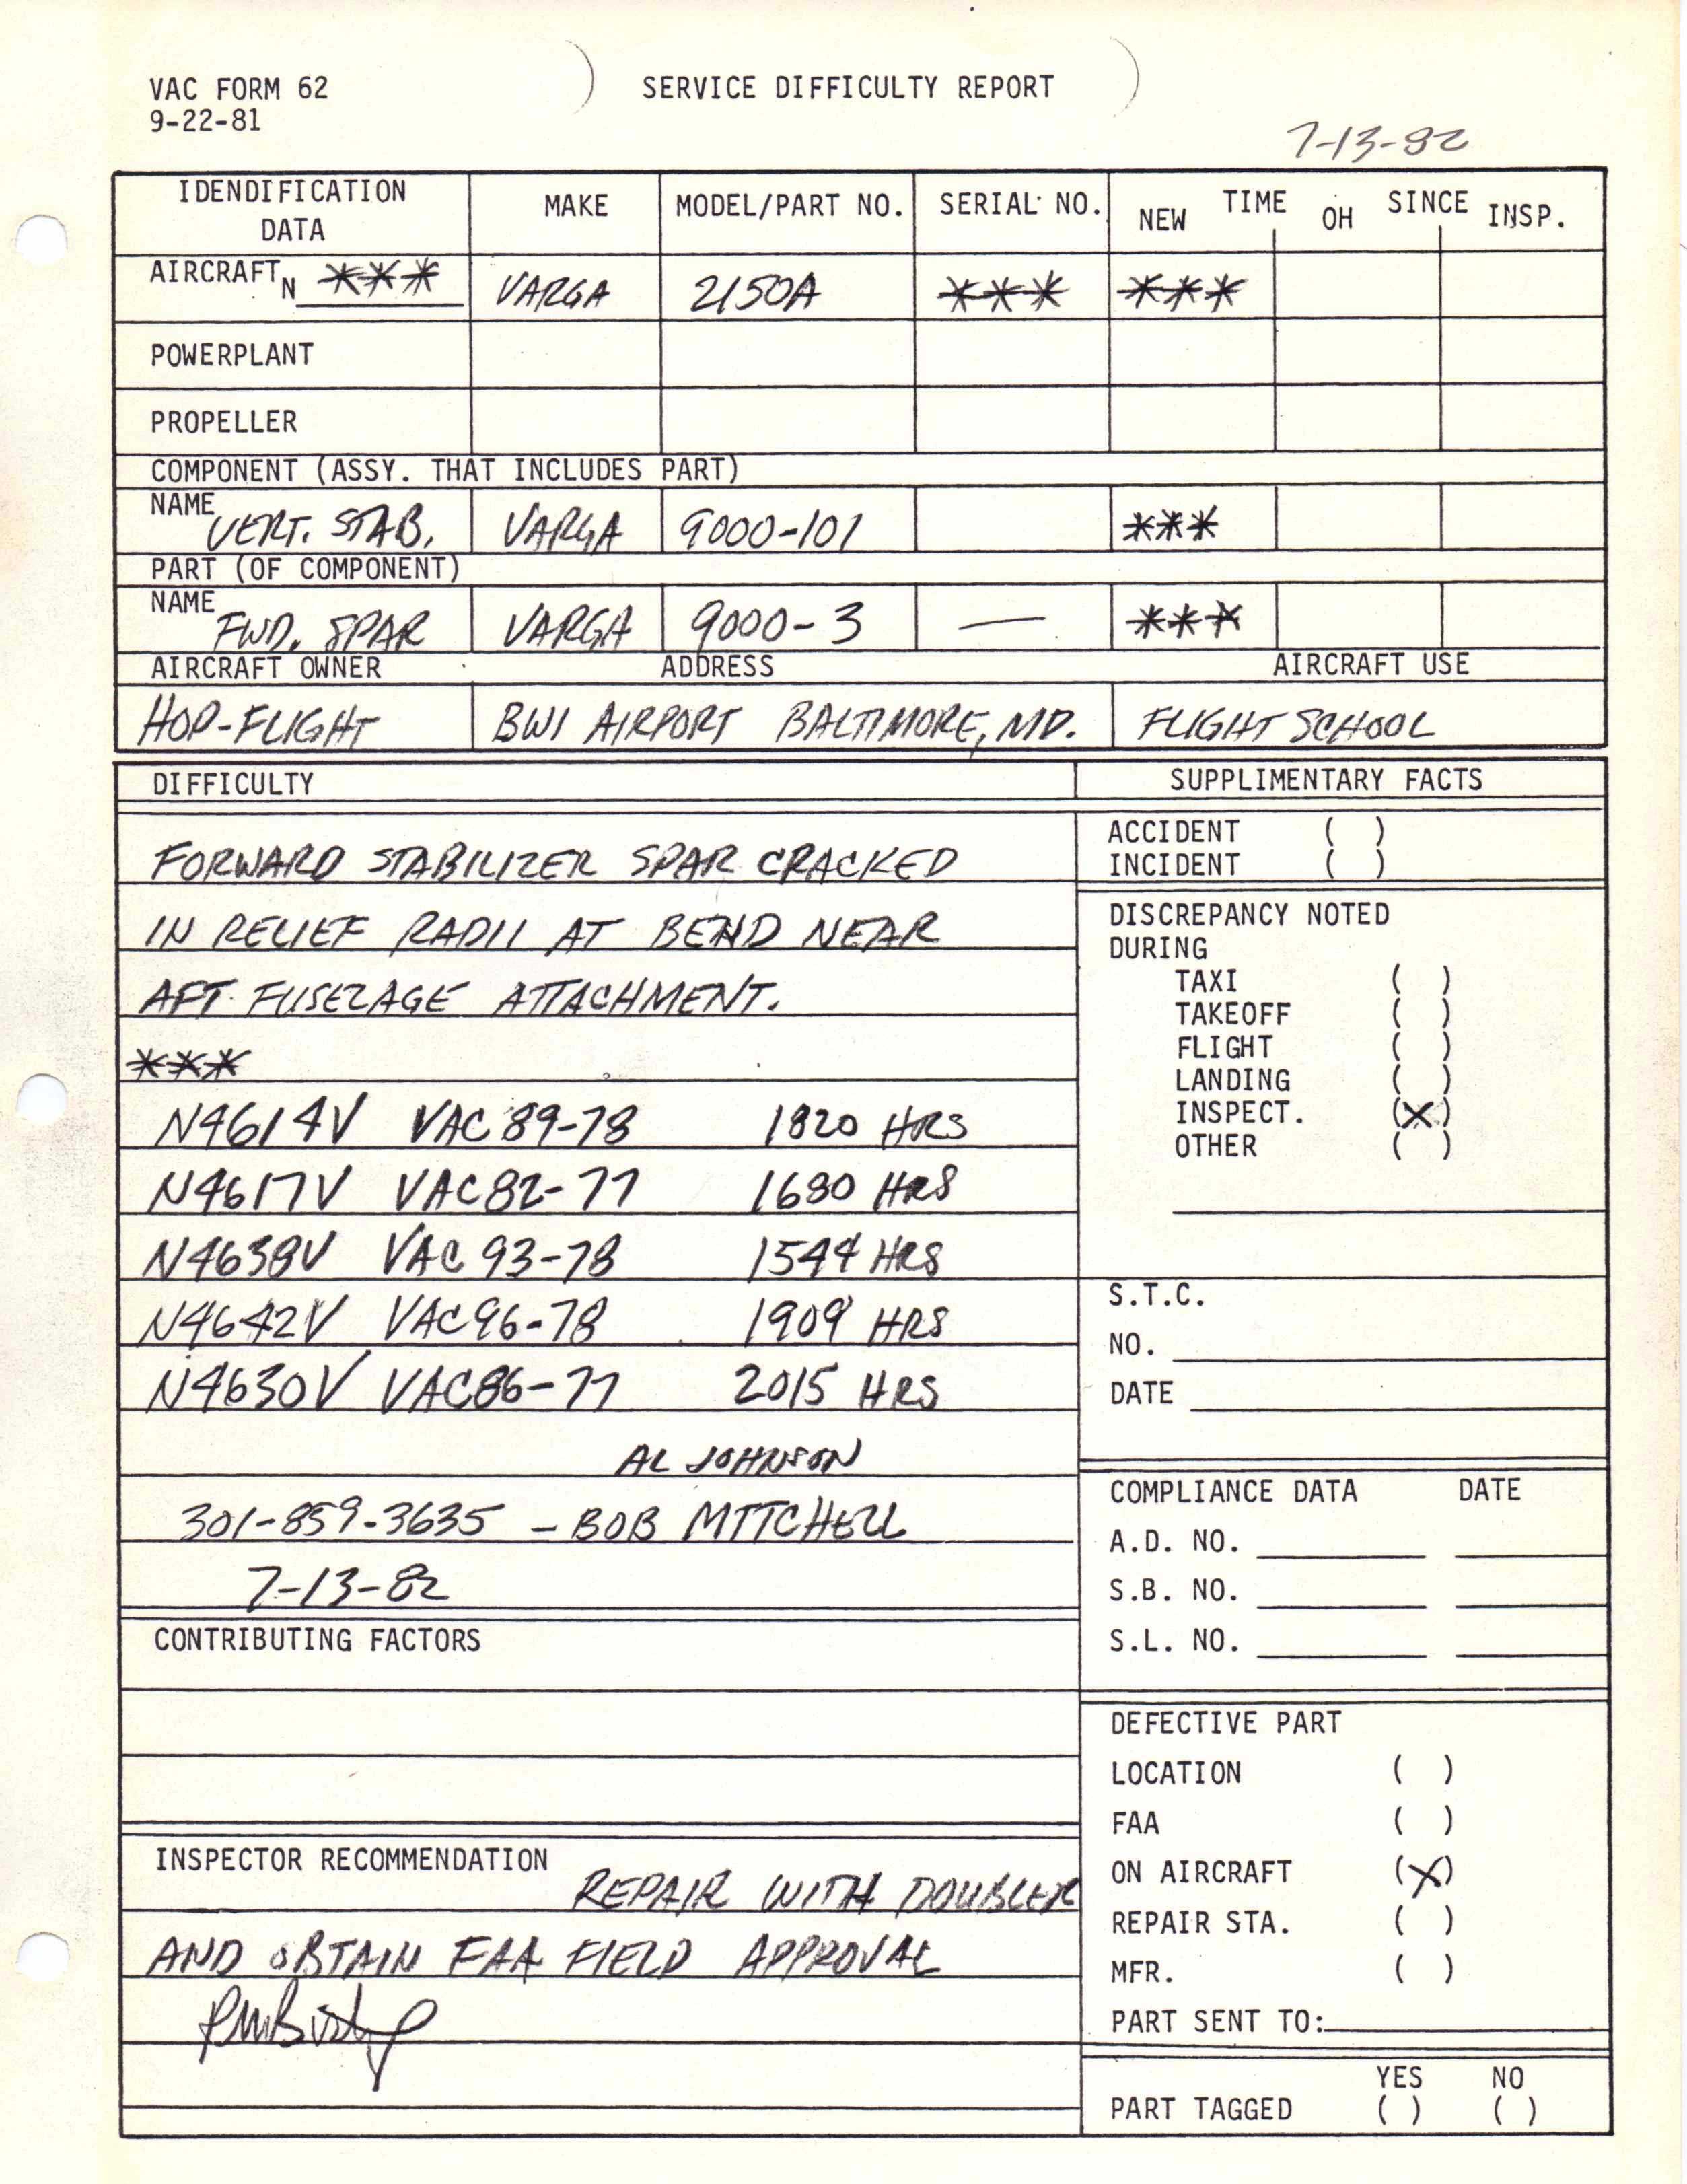 VAC FORM 62
9-22-81
SERVICE DIFFICULTY REPORT
7-13-82
IDENDIFICATION DATA MAKE MODEL/PART NO. SERIAL NO. NEW TIME OH SINCE INSP.
AIRCRAFT N *** VARGA 2150A *** ***
POWERPLANT
PROPELLER
COMPONENT (ASSY. THAT INCLUDES PART)
NAME VERT. STAB. VARGA 9000-101 ***
PART (OF COMPONENT)
NAME FWD. SPAR VARGA 9000-3 — ***
AIRCRAFT OWNER ADDRESS AIRCRAFT USE
HOP-FLIGHT BWI AIRPORT BALTIMORE, MD. FLIGHT SCHOOL
DIFFICULTY
FORWARD STABILIZER SPAR CRACKED
IN RELIEF RADII AT BEND NEAR
AFT FUSELAGE ATTACHMENT.
***
N4614V VAC 89-78 1820 HRS
N4617V VAC 82-77 1680 HRS
N4638V VAC 93-78 1544 HRS
N4642V VAC 96-78 1909 HRS
N4630V VAC86-77 2015 HRS
AL JOHNSON
301-859-3635 - BOB MITCHELL
7-13-82
CONTRIBUTING FACTORS
INSPECTOR RECOMMENDATION REPAIR WITH DOUBLER
AND OBTAIN FAA FIELD APPROVAL
SUPPLIMENTARY FACTS
ACCIDENT ( )
INCIDENT ( )
DISCREPANCY NOTED
DURING
TAXI ( )
TAKEOFF ( )
FLIGHT ( )
LANDING ( )
INSPECT. (X)
OTHER ( )
S.T.C.
NO.
DATE
COMPLIANCE DATA DATE
A.D. NO.
S.B. NO.
S.L. NO.
DEFECTIVE PART
LOCATION ( )
FAA ( )
ON AIRCRAFT (X)
REPAIR STA. ( )
MFR. ( )
PART SENT TO:
YES NO
PART TAGGED ( ) ( )